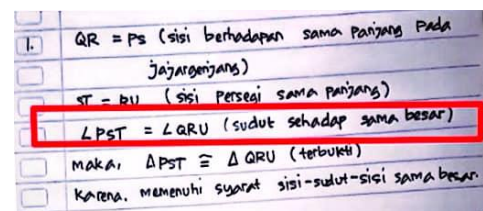 1. QR = PS (sisi berhadapan sama panjang pada
jajargenjang)
ST = RU (sisi persegi sama panjang)
∠PST = ∠QRU (sudut sehadap sama besar)
maka, ΔPST ≅ ΔQRU (terbukti)
Karena. memenuhi syarat sisi-sudut-sisi sama besar.